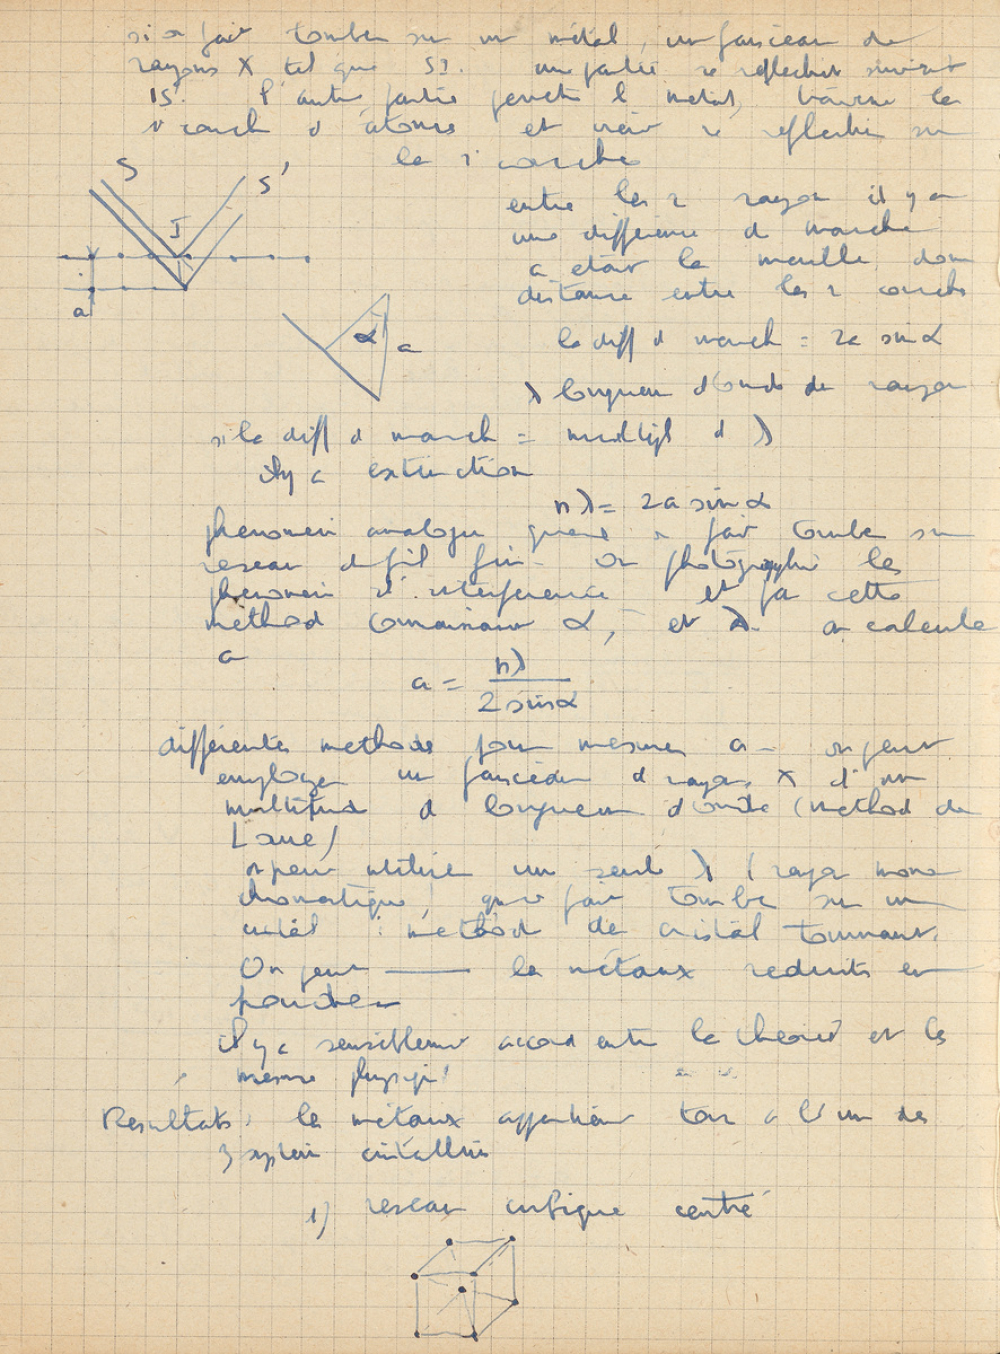 si on fait tomber sur un métal, un faisceau de
rayons X tel que SI. une partie se reflechit suivant
IS'. l'autre partie penetr le metal, traverse la
1 couch d'atomes et vient se reflechir sur
la 2 couche
S
S'
I
a
entre les 2 rayon il y a
une difference d marche
a etant la maille, donc
distance entre les 2 couchs
la diff d march = 2a sin α
α
a
λ longueur d'onde de rayon
si la diff d march = multipl d λ
il y a extinction
nλ = 2a sin α
phenomen analogu quand on fait tomber sur
reseau d fil fin - on photographie les
phenomen d'interference et par cette
method connaissant α, et λ. on calcule
a
a = nλ / 2 sin α
différentes methode pour mesurer a - on peut
employer un faisceau d rayon X d'un
multitud d longueur d'onde (method de
Laue)
on peut utiliser un seul λ (rayon mono
chromatique) qu'on fait tomber sur un
métal : method de cristal tournant.
On peut ——— les métaux reduits en
poudre
il y a sensiblement accord entre la theorie et les
mesure physiq
Resultats : les métaux appartien tous a l'un des
3 system cristallins
1) reseau cubique centré